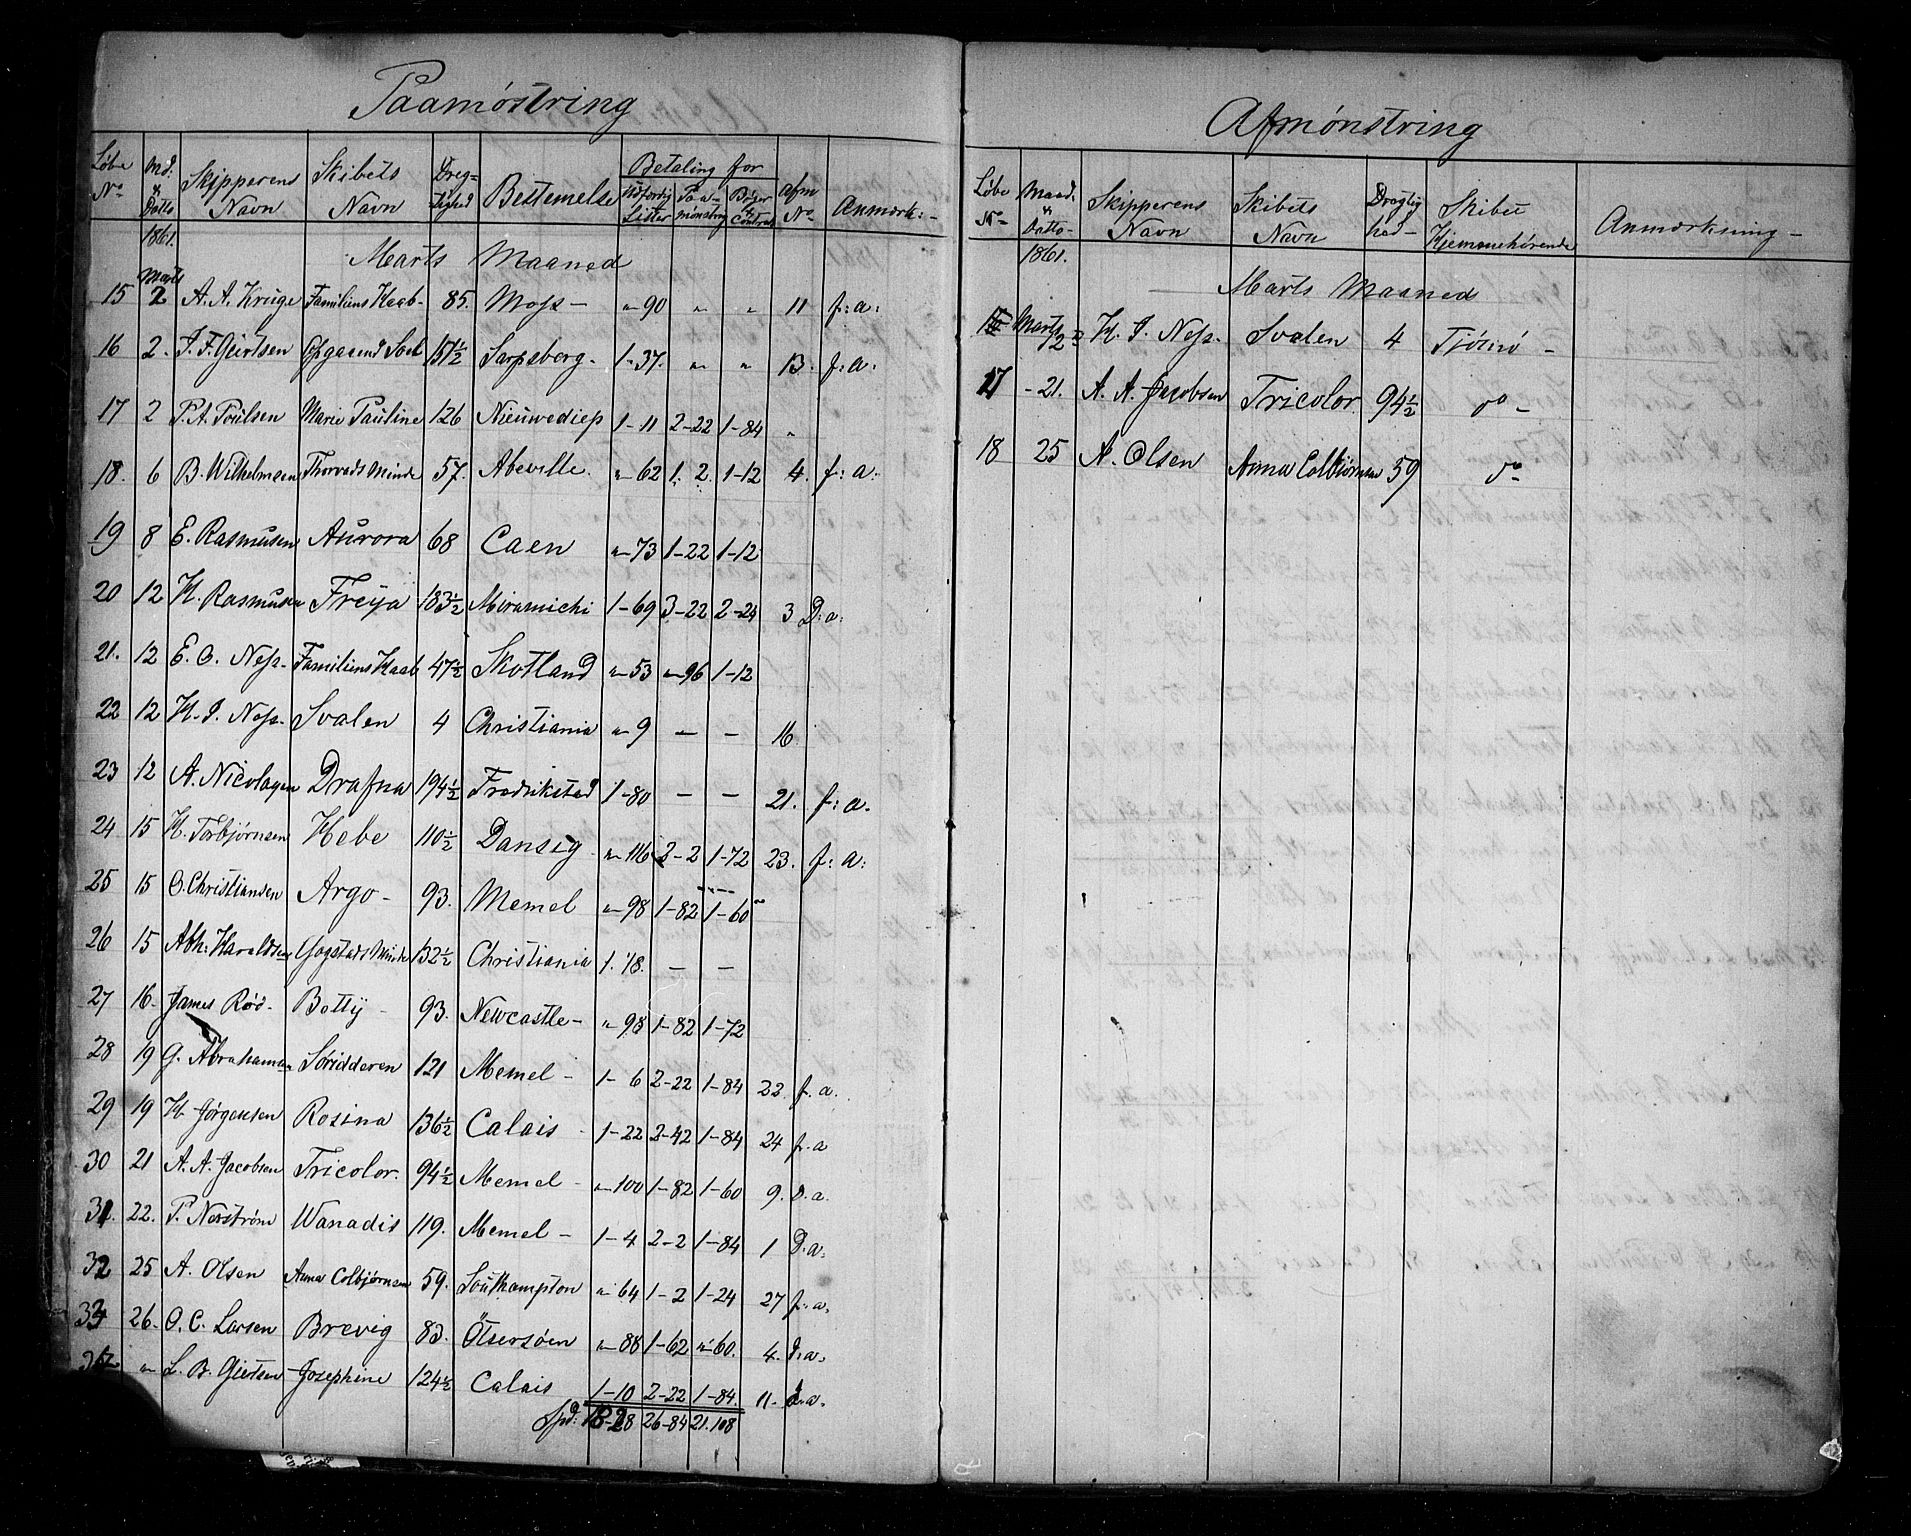 Paamøstring
Løbe No | Md: & Datto | Skipperens Navn | Skibets Navn | Dreg=tighed | Bestemelse | Betaling for | Udfærdig Lister | Paa-mønstrng | Bøger & Contrat | Afm No | Anmærk:-
1861. Marts Maaned
15 | Marts 2 | A. A. Kruge | Familiens Haab- | 85. | Moss - | " 90 | " | " | 11 | f: a:
16 | 2. | J. F. Gjertsen | | 157½ | Sarpsborg - | 1-37. | " | " | 13. | f: a:
17 | 2 | P. A. Poulsen | Marie Pauline | 126 | Nieuwediep | 1-11 | 2-22 | 1-84 | "
18. | 6 | B. Wilhelmsen | Thorvads Minde | 57. | Abeville. | "-62 | 1. 2. | 1-12 | 4. | f: a:
19 | 8 | E. Rasmusen | Aurora | 68 | Caen | "-73 | 1-22 | 1-12
20 | 12 | H. Rasmusen | Freya | 183½ | Miramichi | 1-69 | 3-22 | 2-24 | 3 | D: a:
21. | 12 | E. O. Ness- | Familiens Haab | 47½ | Skotland | "-53 | "-96 | 1-12
22 | 12 | H. J. Ness- | Svalen | 4 | Christiania | "-9 | - | - | 16.
23 | 12 | A. Nicolaysen | Drafna | 194½ | Fredrikstad | 1-80 | - | - | 21. | f: a.
24 | 15 | H. Torbjørnsen | Hebe | 110½ | Dansig | "-116 | 2-2 | 1-72 | 23. | f: a:
25 | 15 | O. Christiansen | Argo - | 93. | Memel | "-98 | 1-82 | 1-60
26 | 15 | Abh: Haraldsen | Gogstads Minde | 132½ | Christiania | 1. 18. | - | -
27 | 16- | James Rød- | Betty - | 93. | Newcastle - | "-98 | 1-82 | 1-72
28 | 19 | G. Abrahamsen | Skridderen | 121 | Memel - | 1-6 | 2-22 | 1-84 | 22. | f. a.
29 | 19 | H. Jørgensen | Rosina | 136½ | Calais - | 1-22 | 2-42 | 1-84 | 24 | f. a
30 | 21 | A. A. Jacobsen | Tricolor. | 94½ | Memel - | "-100 | 1-82 | 1-60 | 9. | D. a.
31. | 22. | P. Norstrøm | Wanadis | 119. | Memel - | 1-4 | 2-2 | 1-84 | 1 | D. a:
32 | 25 | A. Olsen | Anna Colbjørnsen | 59. | Southampton | "-64 | 1-2 | 1-24 | 27 | f. a.
33 | 26- | O. C. Larsen | Brevig | 83. | Øtsersøen | "-88 | 1-62 | "-60. | 4. | D: a:
" | L. B. Gjertsen | Josephine | 124½ | Calais | 1-10 | 2-22 | 1-84. | 11- | D. a.
Spd: | 26-84 | 21.108
Afmønstring
Løbe No | Maad: & Datto- | Skipperens Navn | Skibets Navn | Dregtighed- | Skibet Hjemmehørende | Anmærkning-
1861. Marts Maaned
Marts 12 | H. J. Ness- | Svalen | 4 | Tjømø -
17 | - 21. | A. A. Jacobsen | Tricolor | 94½ | do -
18 | 25 | A. Olsen | Anna Colbiørnsen | 59 | do